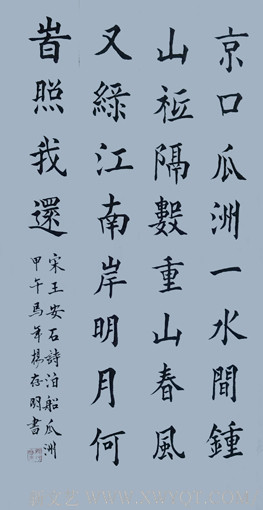 京口瓜洲一水間鍾
山祗隔數重山春風
又綠江南岸明月何
旹照我還
宋王安石詩泊船瓜洲
甲午馬年楊存明書